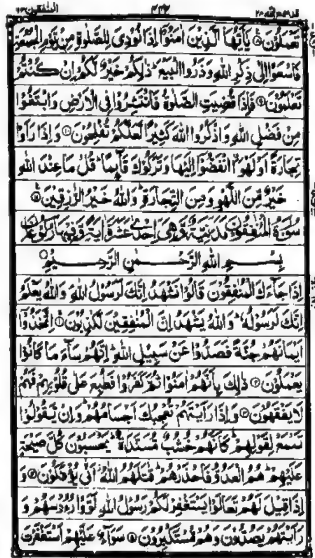 قد سمع الله ۲۸ ۴۴۴ المنفقون ۶۳
تَعْمَلُوْنَ يٰۤاَيُّهَا الَّذِيْنَ اٰمَنُوْۤا اِذَا نُوْدِىَ لِلصَّلٰوةِ مِنْ يَّوْمِ الْجُمُعَةِ
فَاسْعَوْا اِلٰى ذِكْرِ اللّٰهِ وَذَرُوا الْبَيْعَ ذٰلِكُمْ خَيْرٌ لَّكُمْ اِنْ كُنْتُمْ
تَعْلَمُوْنَ فَاِذَا قُضِيَتِ الصَّلٰوةُ فَانْتَشِرُوْا فِى الْاَرْضِ وَابْتَغُوْا
مِنْ فَضْلِ اللّٰهِ وَاذْكُرُوا اللّٰهَ كَثِيْرًا لَّعَلَّكُمْ تُفْلِحُوْنَ وَاِذَا رَاَوْا
تِجَارَةً اَوْ لَهْوًا انْفَضُّوْۤا اِلَيْهَا وَتَرَكُوْكَ قَآئِمًا قُلْ مَا عِنْدَ اللّٰهِ
خَيْرٌ مِّنَ اللَّهْوِ وَمِنَ التِّجَارَةِ وَاللّٰهُ خَيْرُ الرّٰزِقِيْنَ
سُوْرَةُ الْمُنٰفِقُوْنَ مَدَنِيَّةٌ وَّهِىَ اِحْدٰى عَشْرَةَ اٰيَةً وَّفِيْهَا رُكُوْعَانِ
بِسْمِ اللّٰهِ الرَّحْمٰنِ الرَّحِيْمِ
اِذَا جَآءَكَ الْمُنٰفِقُوْنَ قَالُوْا نَشْهَدُ اِنَّكَ لَرَسُوْلُ اللّٰهِ وَاللّٰهُ يَعْلَمُ
اِنَّكَ لَرَسُوْلُهٗ وَاللّٰهُ يَشْهَدُ اِنَّ الْمُنٰفِقِيْنَ لَكٰذِبُوْنَ اِتَّخَذُوْۤا
اَيْمَانَهُمْ جُنَّةً فَصَدُّوْا عَنْ سَبِيْلِ اللّٰهِ اِنَّهُمْ سَآءَ مَا كَانُوْا
يَعْمَلُوْنَ ذٰلِكَ بِاَنَّهُمْ اٰمَنُوْا ثُمَّ كَفَرُوْا فَطُبِعَ عَلٰى قُلُوْبِهِمْ فَهُمْ
لَا يَفْقَهُوْنَ وَاِذَا رَاَيْتَهُمْ تُعْجِبُكَ اَجْسَامُهُمْ وَاِنْ يَّقُوْلُوْا
تَسْمَعْ لِقَوْلِهِمْ كَاَنَّهُمْ خُشُبٌ مُّسَنَّدَةٌ يَحْسَبُوْنَ كُلَّ صَيْحَةٍ
عَلَيْهِمْ هُمُ الْعَدُوُّ فَاحْذَرْهُمْ قَاتَلَهُمُ اللّٰهُ اَنّٰى يُؤْفَكُوْنَ وَ
اِذَا قِيْلَ لَهُمْ تَعَالَوْا يَسْتَغْفِرْ لَكُمْ رَسُوْلُ اللّٰهِ لَوَّوْا رُءُوْسَهُمْ وَ
رَاَيْتَهُمْ يَصُدُّوْنَ وَهُمْ مُّسْتَكْبِرُوْنَ سَوَآءٌ عَلَيْهِمْ اَسْتَغْفَرْتَ